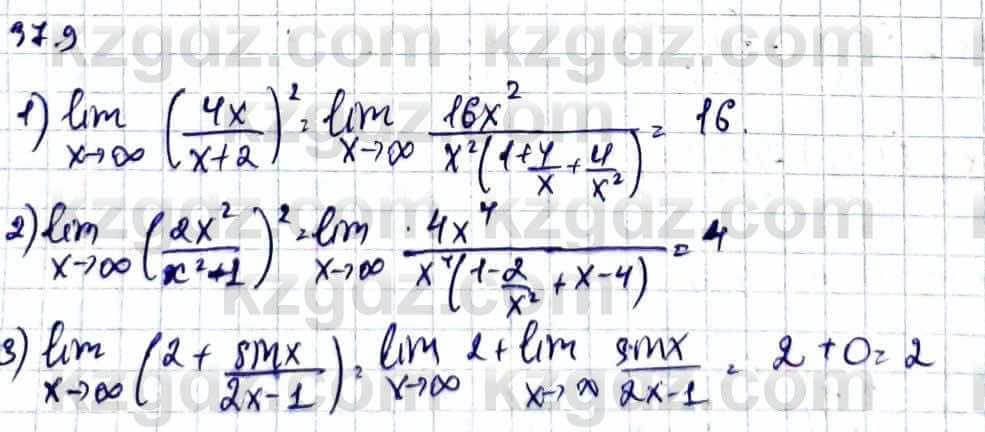 379
1) lim x→∞ (4x/(x+2))² = lim x→∞ 16x²/(x²(1+4/x+4/x²)) = 16.
2) lim x→∞ (2x²/(x²+1))² = lim x→∞ 4x⁴/(x⁴(1-2/x²+x-4)) = 4
3) lim x→∞ (2+sinx/(2x-1)) = lim x→∞ 2+lim x→∞ sinx/(2x-1) = 2+0=2
kzgdz.com kzgdz.com
kzgdz.com kzgdz.com
kzgdz.com kzgdz.com
kzgdz.com kzgdz.com
kzgdz.com kzgdz.com